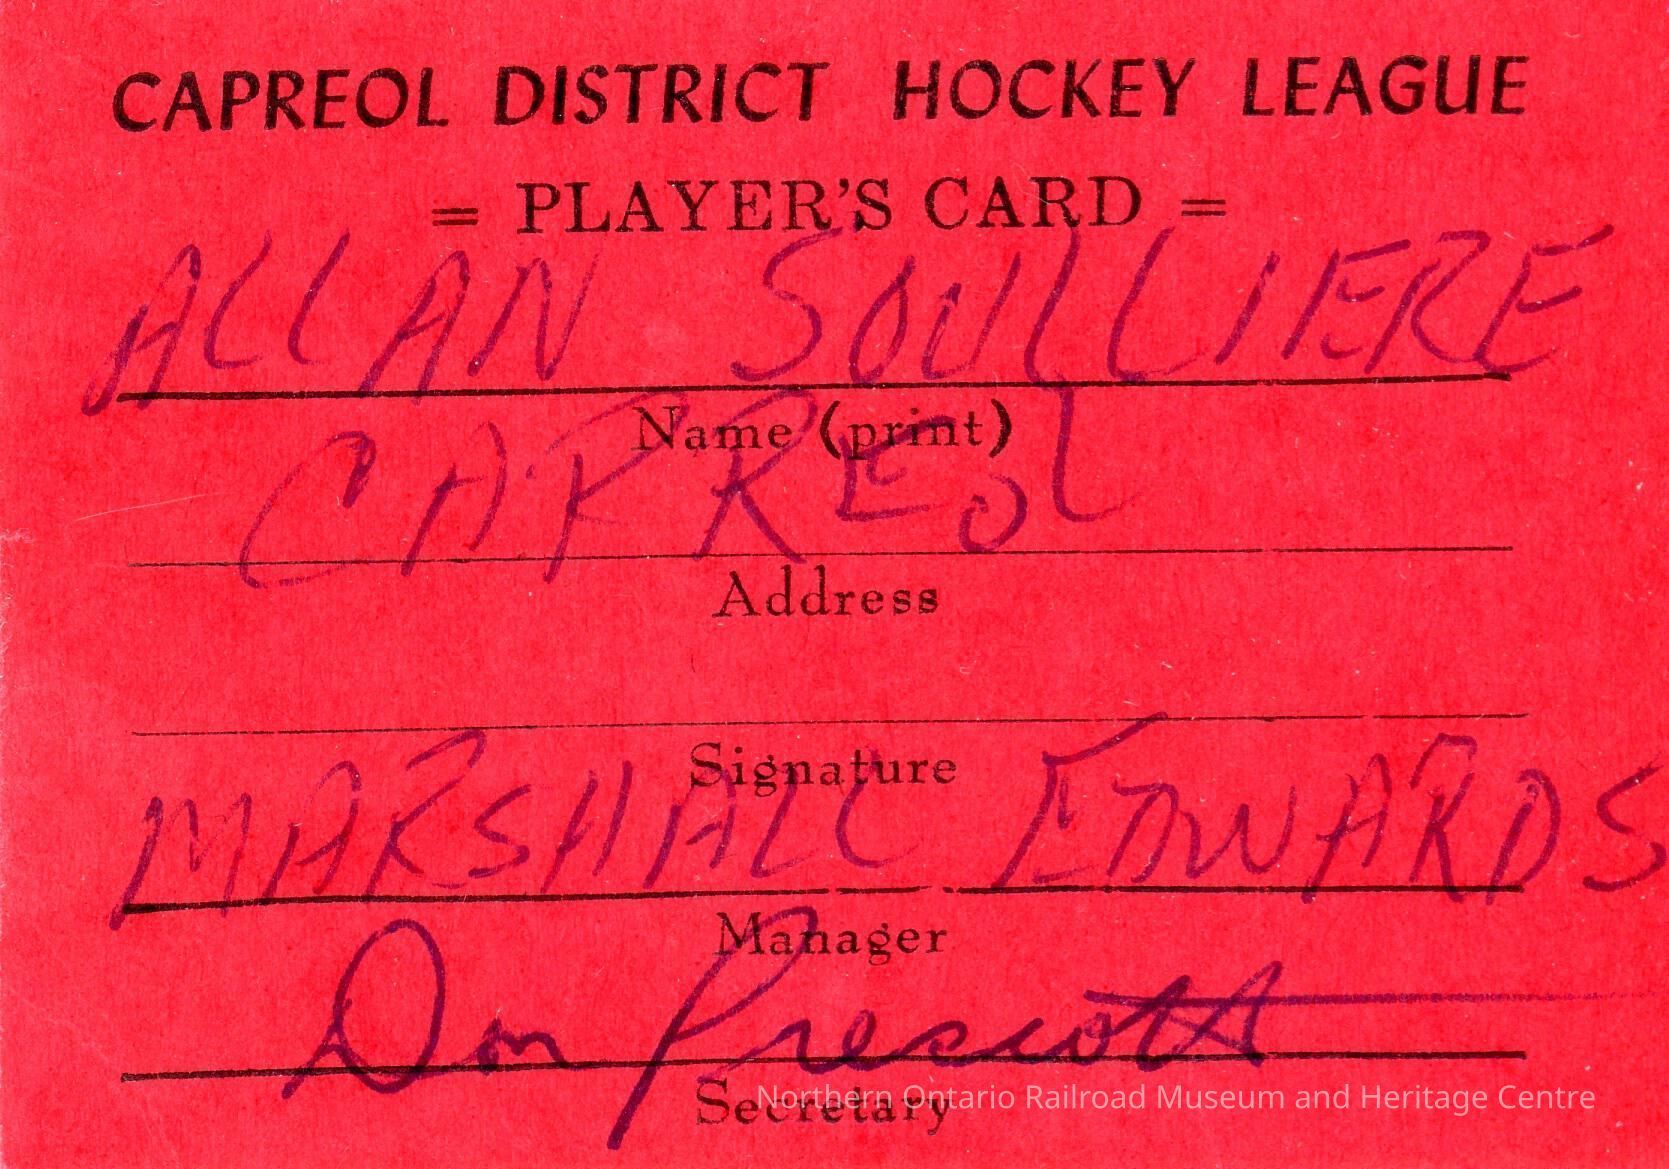 CAPREOL DISTRICT HOCKEY LEAGUE
= PLAYER'S CARD =
ALLAN SOULLIERE
Name (print)
CAPREOL
Address
Signature
MARSHALL EDWARDS
Manager
Don Prescott
Secretary
Northern Ontario Railroad Museum and Heritage Centre